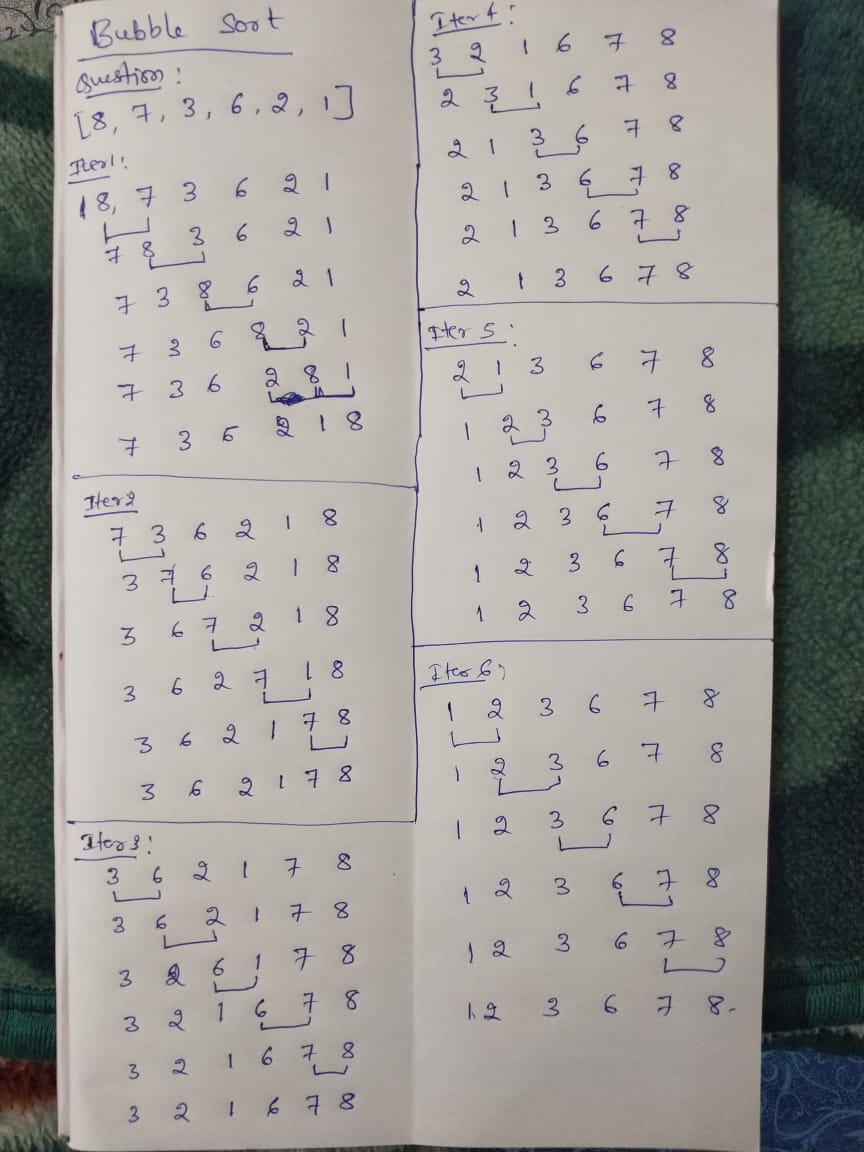 Bubble Sort
Question:
[8, 7, 3, 6, 2, 1]
Iter1:
1 8, 7 3 6 2 1
7 8 3 6 2 1
7 3 8 6 2 1
7 3 6 8 2 1
7 3 6 2 8 1
7 3 6 2 1 8
Iter2
7 3 6 2 1 8
3 7 6 2 1 8
3 6 7 2 1 8
3 6 2 7 1 8
3 6 2 1 7 8
3 6 2 1 7 8
Iter3:
3 6 2 1 7 8
3 6 2 1 7 8
3 2 6 1 7 8
3 2 1 6 7 8
3 2 1 6 7 8
3 2 1 6 7 8
Iter 4:
3 2 1 6 7 8
2 3 1 6 7 8
2 1 3 6 7 8
2 1 3 6 7 8
2 1 3 6 7 8
2 1 3 6 7 8
Iter 5:
2 1 3 6 7 8
1 2 3 6 7 8
1 2 3 6 7 8
1 2 3 6 7 8
1 2 3 6 7 8
1 2 3 6 7 8
Iter 6:
1 2 3 6 7 8
1 2 3 6 7 8
1 2 3 6 7 8
1 2 3 6 7 8
1 2 3 6 7 8
1. 2 3 6 7 8.